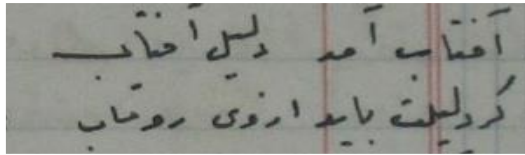 آفتاب آمد دلیل آفتاب
گر دلیلت باید از وی رو متاب